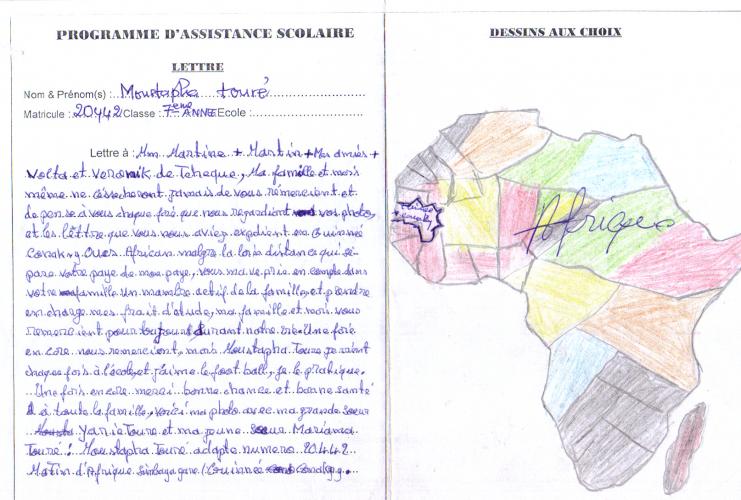 PROGRAMME D'ASSISTANCE SCOLAIRE
LETTRE
Nom & Prénom(s) : Moustapha touré
Matricule : 20442 /Classe : 7ème ANNE Ecole :
Lettre à : Mm Martine + Martin + Mes amiés +
Volta et Veronik de Tcheque, Ma famille et mois
même ne cesseront jamais de vous rémercient et
de pense a vous chaque foré que nous regardient vos photos,
et les lèttre que vous nous aviez expedient en Guinnée
Conakry Oues African malgre la loin distance qui sé-
pare votre paye de mon paye, vous ma ve pris en compte dans
votre famille un mambre actif de la famille, et prendre
en charge mes frait d'étude, ma famille et mois vous
remercient pour toujours durant notre vie. Une foré
en core nous remercient, mois Moustapha Toure je vient
chaque fois à l'école, et j'aime le foot ball, je le pratique.
Une fois encore merci bonne chance et bonne santé
à toute la famille, voici ma photo avec ma grande soeur
Yarie Toure et ma jeune soeur Mariama
Toure : Moustapha Toure adopte numero 20442
Matin d'Afrique Simbaya gare / Guinnée Conakry
DESSINS AUX CHOIX
Guinnée
Conakry
Afrique